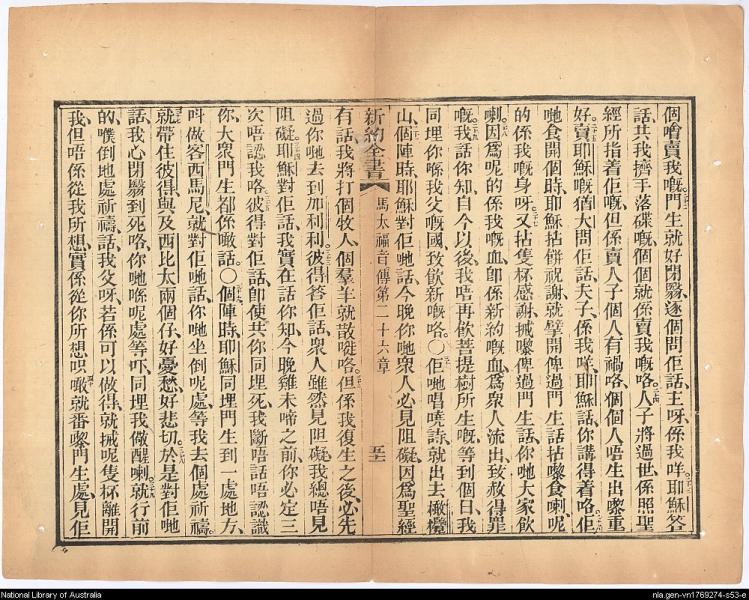 個噲賣我嘅門生就好閉翳、逐個問佢話、主呀、係我咩、耶穌答
話、共我擠手落碟嘅、個個就係賣我嘅咯、人子將過世、係照聖
經所指着佢嘅、但係賣人子個人有禍咯、個個人唔生出嚟重
好、賣耶穌嘅猶大問佢話、夫子、係我咩、耶穌話、你講得着咯、佢
哋食開個時、耶穌拈餅祝謝、就擘開俾過門生話、拈嚟食喇、呢
的係我嘅身呀、又拈隻杯感謝、摵嚟俾過門生話、你哋大家飲
喇、因爲呢的係我嘅血、卽係新約嘅血、爲衆人流出、致赦得罪
嘅、我話你知、自今以後、我唔再飲菩提樹所生嘅、等到個日、我
同埋你喺我父嘅國、致飲新嘅咯、〇佢哋唱嘵詩、就出去橄欖
山、個陣時、耶穌對佢哋話、今晚你哋衆人必見阻礙、因爲聖經
新約全書 馬太福音傳第二十六章
有話、我將打個牧人、個羣羊就散嘥咯、但係我復生之後、必先
過你哋去到加利利、彼得答佢話、衆人雖然見阻礙、我總唔見
阻礙、耶穌對佢話、我實在話你知、今晚雞未啼之前、你必定三
次唔認我咯、彼得對佢話、卽使共你同埋死、我斷唔話唔認識
你、大衆門生都係噉話、〇個陣時、耶穌同埋門生到一處地方、
呌做客西馬尼、就對佢哋話、你哋坐倒呢處、等我去個處祈禱、
就帶住彼得、與及西比太兩個仔、好憂愁、好悲切、於是對佢哋
話、我心閉翳到死咯、你哋喺呢處等吓、同埋我儆醒喇、就行前
的、噗倒地處祈禱、話、我父呀、若係可以做得、就摵呢隻杯離開
我、但唔係從我所想、實係從你所想呮、噉就番嚟門生處、見佢
National Library of Australia
nla.gen-vn1769274-s53-e